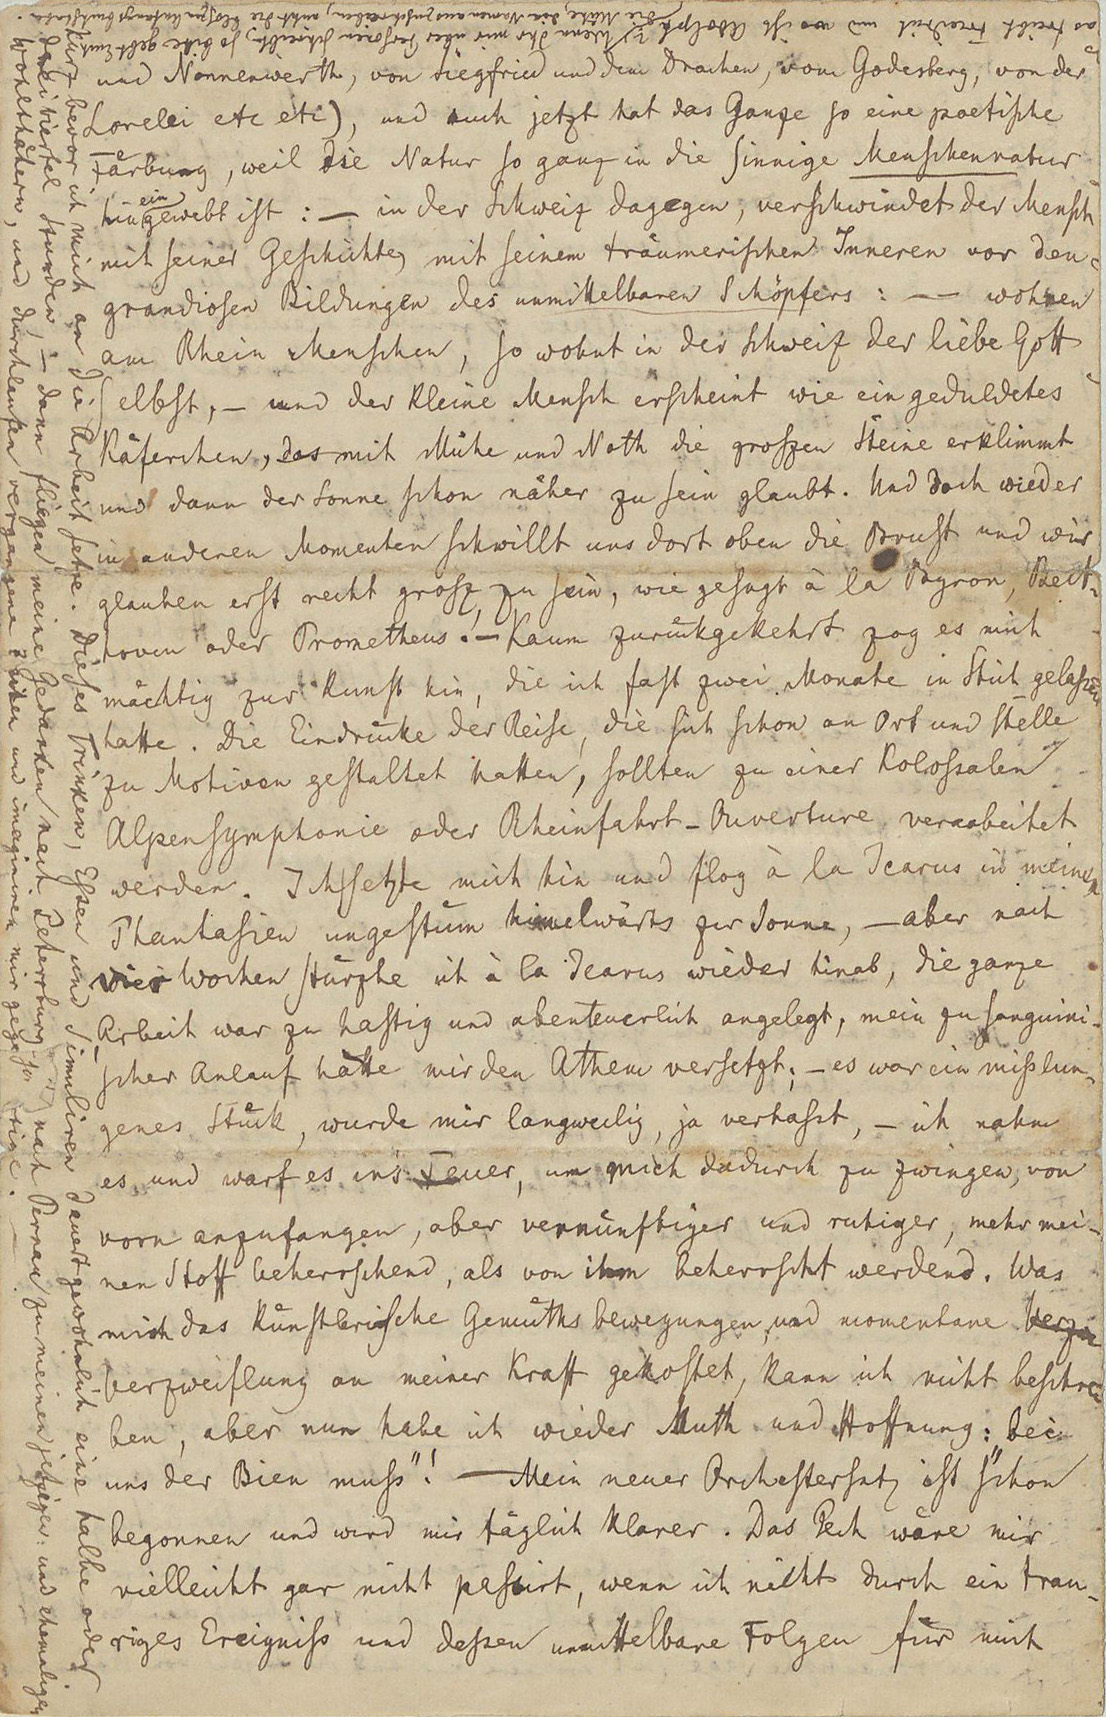 und Nonnenwerth, von Siegfried und dem Drachen, vom Godesberg, von der
Lorelei etc etc), und auch jetzt hat das Ganze so eine poetische
Färbung, weil die Natur so ganz in die sinnige Menschennatur
hineingewebt ist : — in der Schweiz dagegen, verschwindet der Mensch
mit seiner Geschichte, mit seinem träumerischen Inneren vor den
grandiosen Bildungen des unmittelbaren Schöpfers : — wohnen
am Rhein Menschen, so wohnt in der Schweiz der liebe Gott
selbst, — und der kleine Mensch erscheint wie ein geduldetes
Käferchen, das mit Mühe und Noth die groszen Steine erklimmt
und dann der Sonne schon näher zu sein glaubt. Und doch wieder
in anderen Momenten schwillt uns dort oben die Brust und wir
glauben erst recht grosz zu sein, wie gesagt à la Byron, Beet-
hoven oder Prometheus. — Kaum zurückgekehrt zog es mich
mächtig zur Kunst hin, die ich fast zwei Monate in Stich gelassen
hatte. Die Eindrücke der Reise, die sich schon an Ort und Stelle
zu Motiven gestaltet hatten, sollten zu einer Kolossalen
Alpensymphonie oder Rheinfahrt-Ouverture verarbeitet
werden. Ich setzte mich hin und flog à la Icarus in meinen
Phantasien ungestüm himelwärts zur Sonne, — aber nach
vier Wochen stürzte ich à la Icarus wieder hinab, die ganze
Arbeit war zu hastig und abenteuerlich angelegt, mein zu sanguini-
scher Anlauf hatte mir den Athem versetzt; — es war ein misslun-
genes Stück, wurde mir langweilig, ja verhasst, — ich nahm
es und warf es ins Feuer, um mich dadurch zu zwingen, von
vorn anzufangen, aber vernünftiger und ruhiger, mehr mei-
nen Stoff beherrschend, als von ihm beherrscht werdend. Was
mich das künstlerische Gemüthsbewegungen, und momentane
Verzweiflung an meiner Kraft gekostet, kann ich nicht beschrei
ben, aber nun habe ich wieder Muth und Hoffnung: bei
uns der Bien muss"! — Mein neuer Orchestersatz ist schon
begonnen und wird mir täglich klarer. Das Pech wäre mir
vielleicht gar nicht passirt, wenn ich nicht durch ein trau-
riges Ereigniss und dessen unmittelbare Folgen für mich
kurz bevor ich mich an die Arbeit setze. Dieses Trinken, Essen und Simuliren dauert gewöhnlich eine halbe oder
dreiviertel Stunden — dann fliegen meine Gedanken nach Petersburg nach Pernau zu meinen jetzigen und ehemaligen
Wohlthätern, und durchlaufen vergangene Zeiten und imaginiren mir